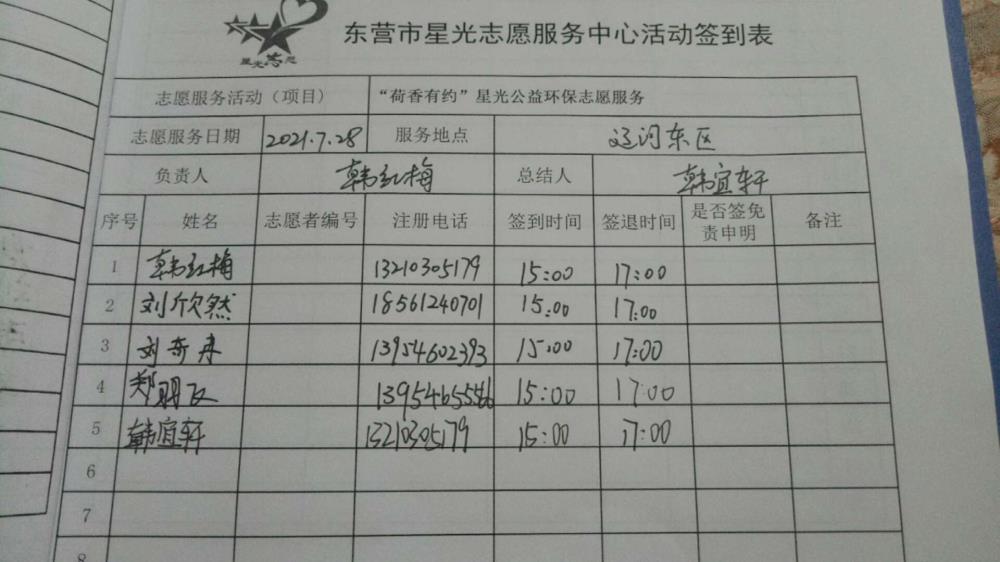 星光志愿
东营市星光志愿服务中心活动签到表
志愿服务活动（项目） “荷香有约”星光公益环保志愿服务
志愿服务日期 2021.7.28 服务地点 辽河东区
负责人 韩红梅 总结人 韩宜轩
序号 姓名 志愿者编号 注册电话 签到时间 签退时间 是否签免责申明 备注
1 韩红梅 13210305179 15:00 17:00
2 刘欣然 18561240701 15:00 17:00
3 刘奇冉 13954602393 15:00 17:00
4 郑 13954655566 15:00 17:00
5 韩宜轩 13210305179 15:00 17:00
6
7
8